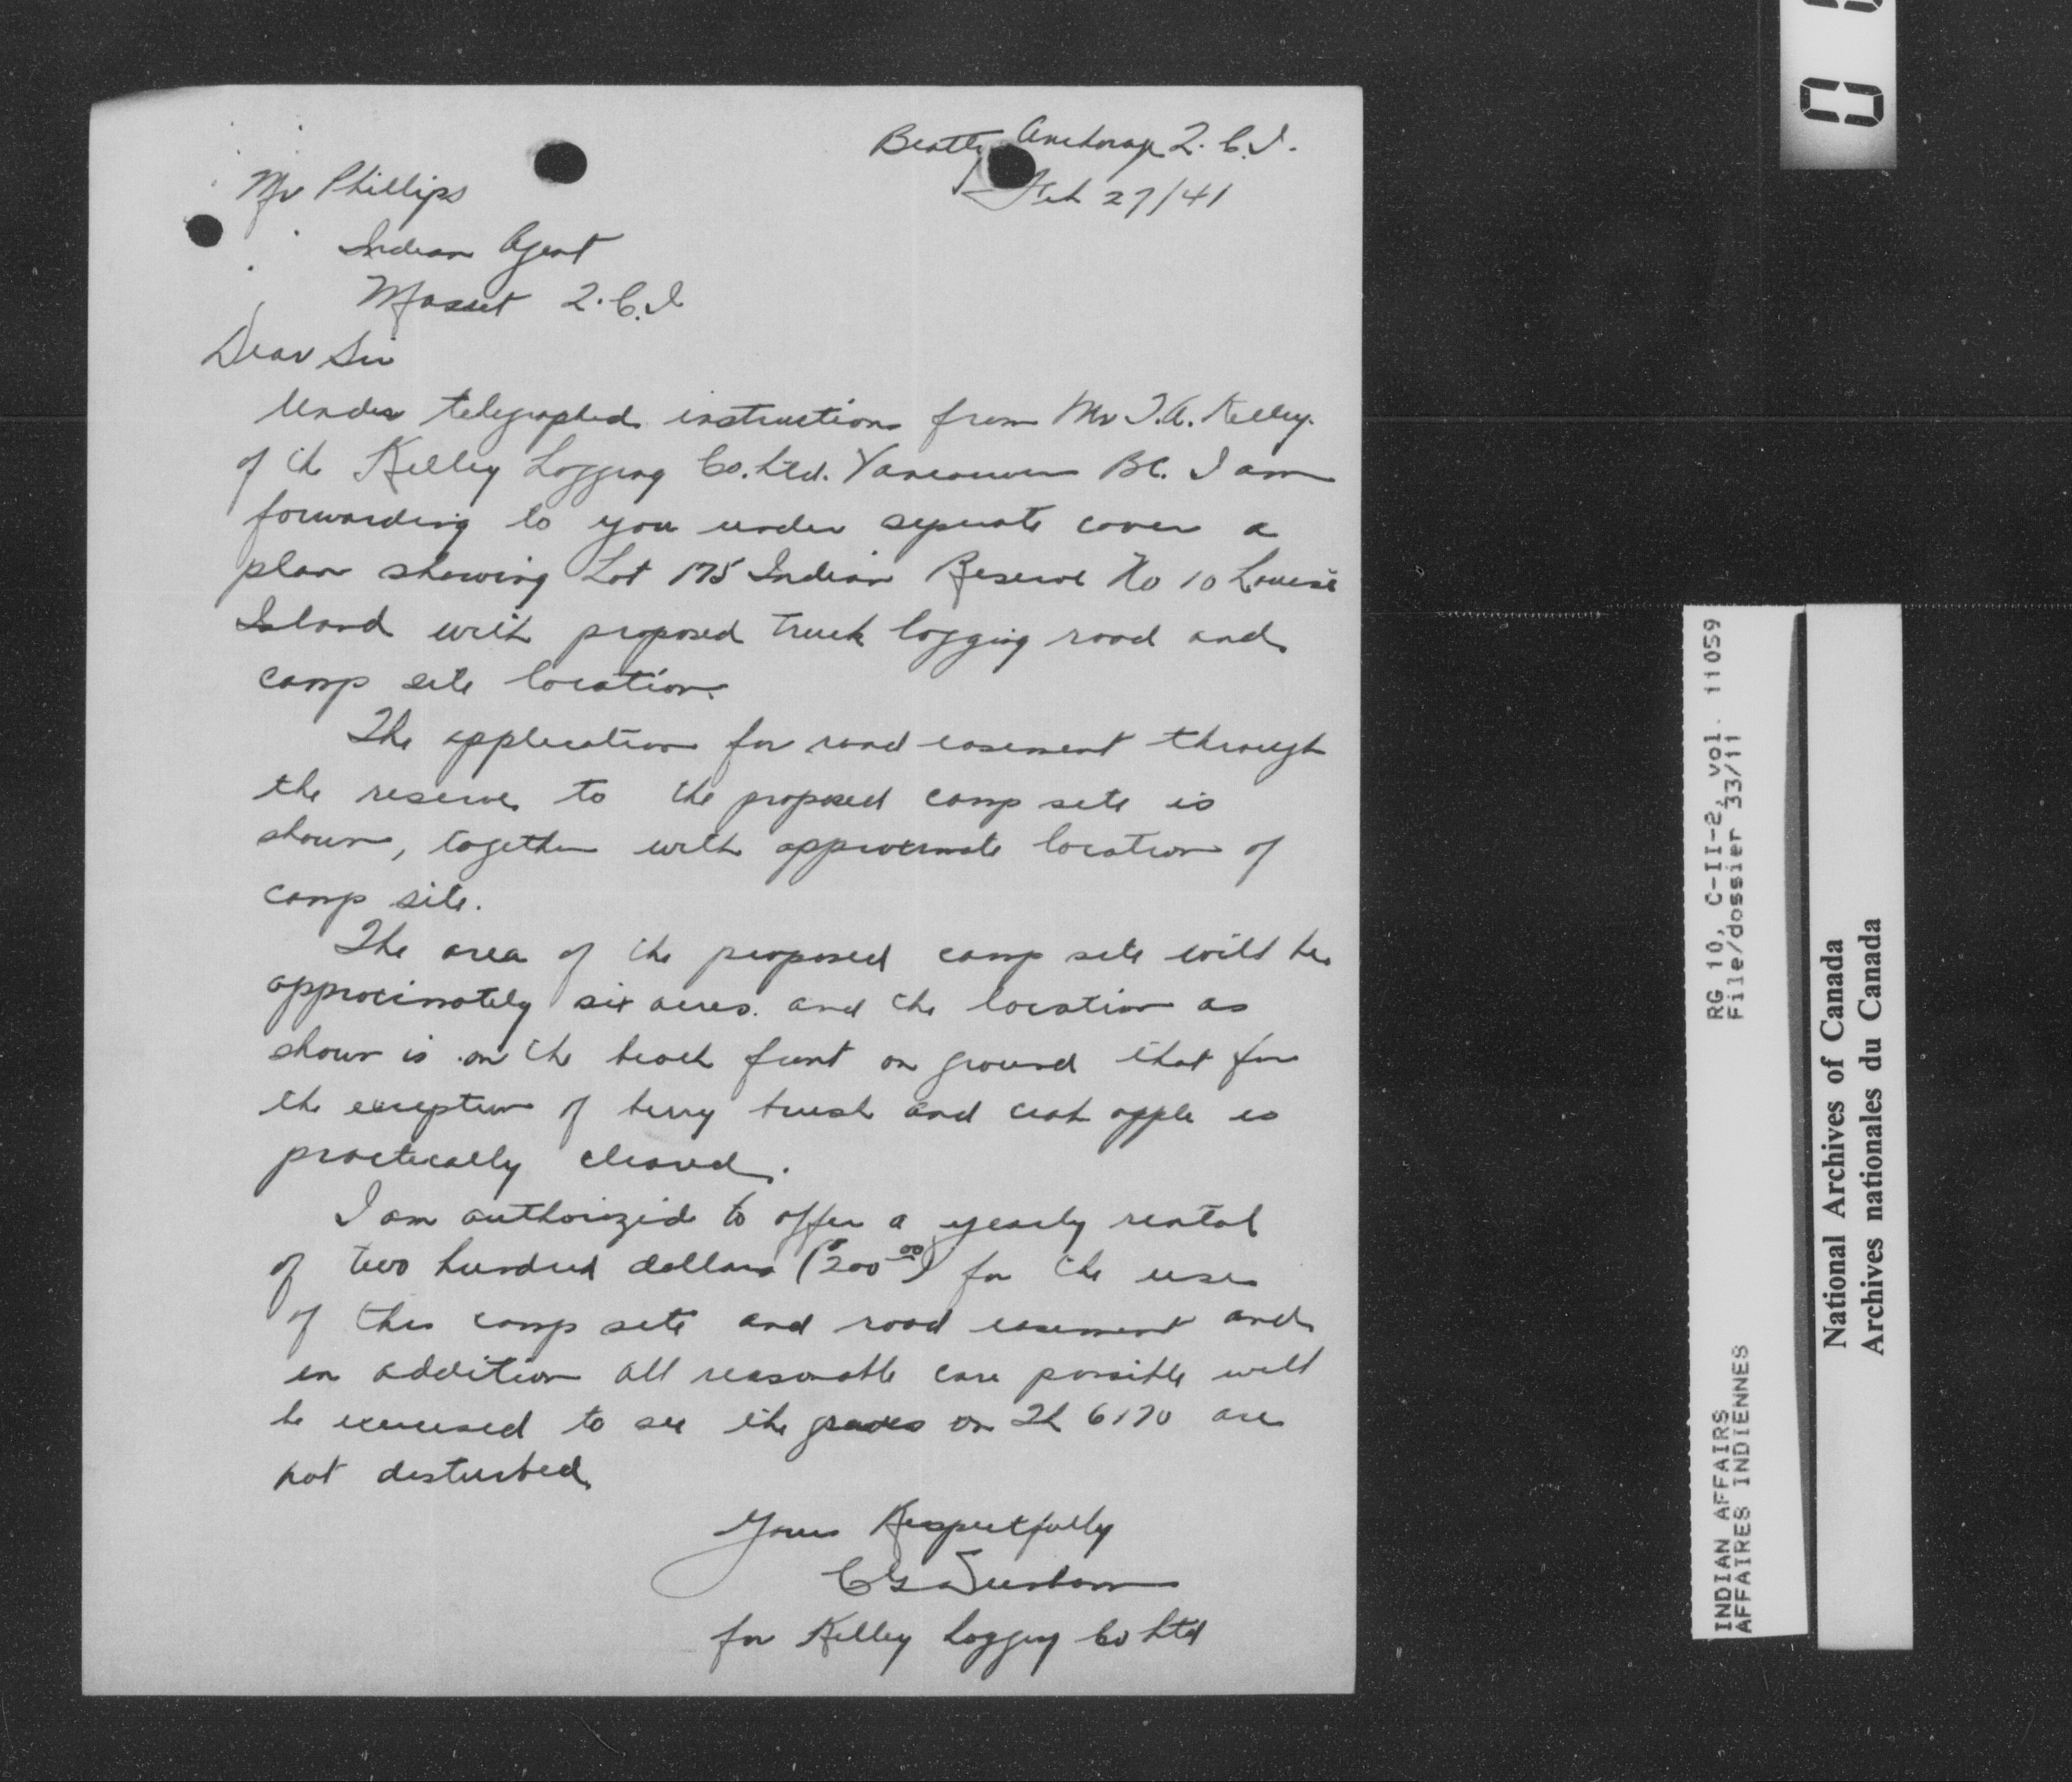 Beattie Anchorage Q.C.I.
Feb 27/41
Mr Phillips
Indian Agent
Masset Q.C.I
Dear Sir
Under telegraphed instructions from Mr T.A. Kelley.
of the Kelley Logging Co. Ltd. Vancouver BC. I am
forwarding to you under seperate cover a
plan showing Lot 175 Indian Reserve No 10 Louise
Island with proposed truck logging road and
camp site location.
The application for road easement through
the reserve to the proposed camp site is
shown, together with approximate location of
camp site.
The area of the proposed camp site will be
approximately six acres. and the location as
shown is on the beach front on ground that for
the exception of berry brush and crab apple is
practically cleared.
I am authorized to offer a yearly rental
of two hundred dollars ($200.00) for the use
of this camp site and road easement and
in addition all reasonable care possible will
be exercised to see the graves on TL 6170 are
not disturbed
Yours Respectfully
for Kelley Logging Co Ltd
0
RG 10, C-II-2, vol. 11059
File/dossier 33/11
INDIAN AFFAIRS
AFFAIRES INDIENNES
National Archives of Canada
Archives nationales du Canada